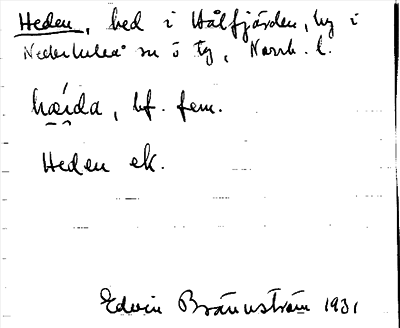 Heden, hed i Hålfjärden, by i
Nederluleå sn ö tg, Norrb. l.
hæida, bf. fem.
Heden ek.
Edvin Brännström 1931